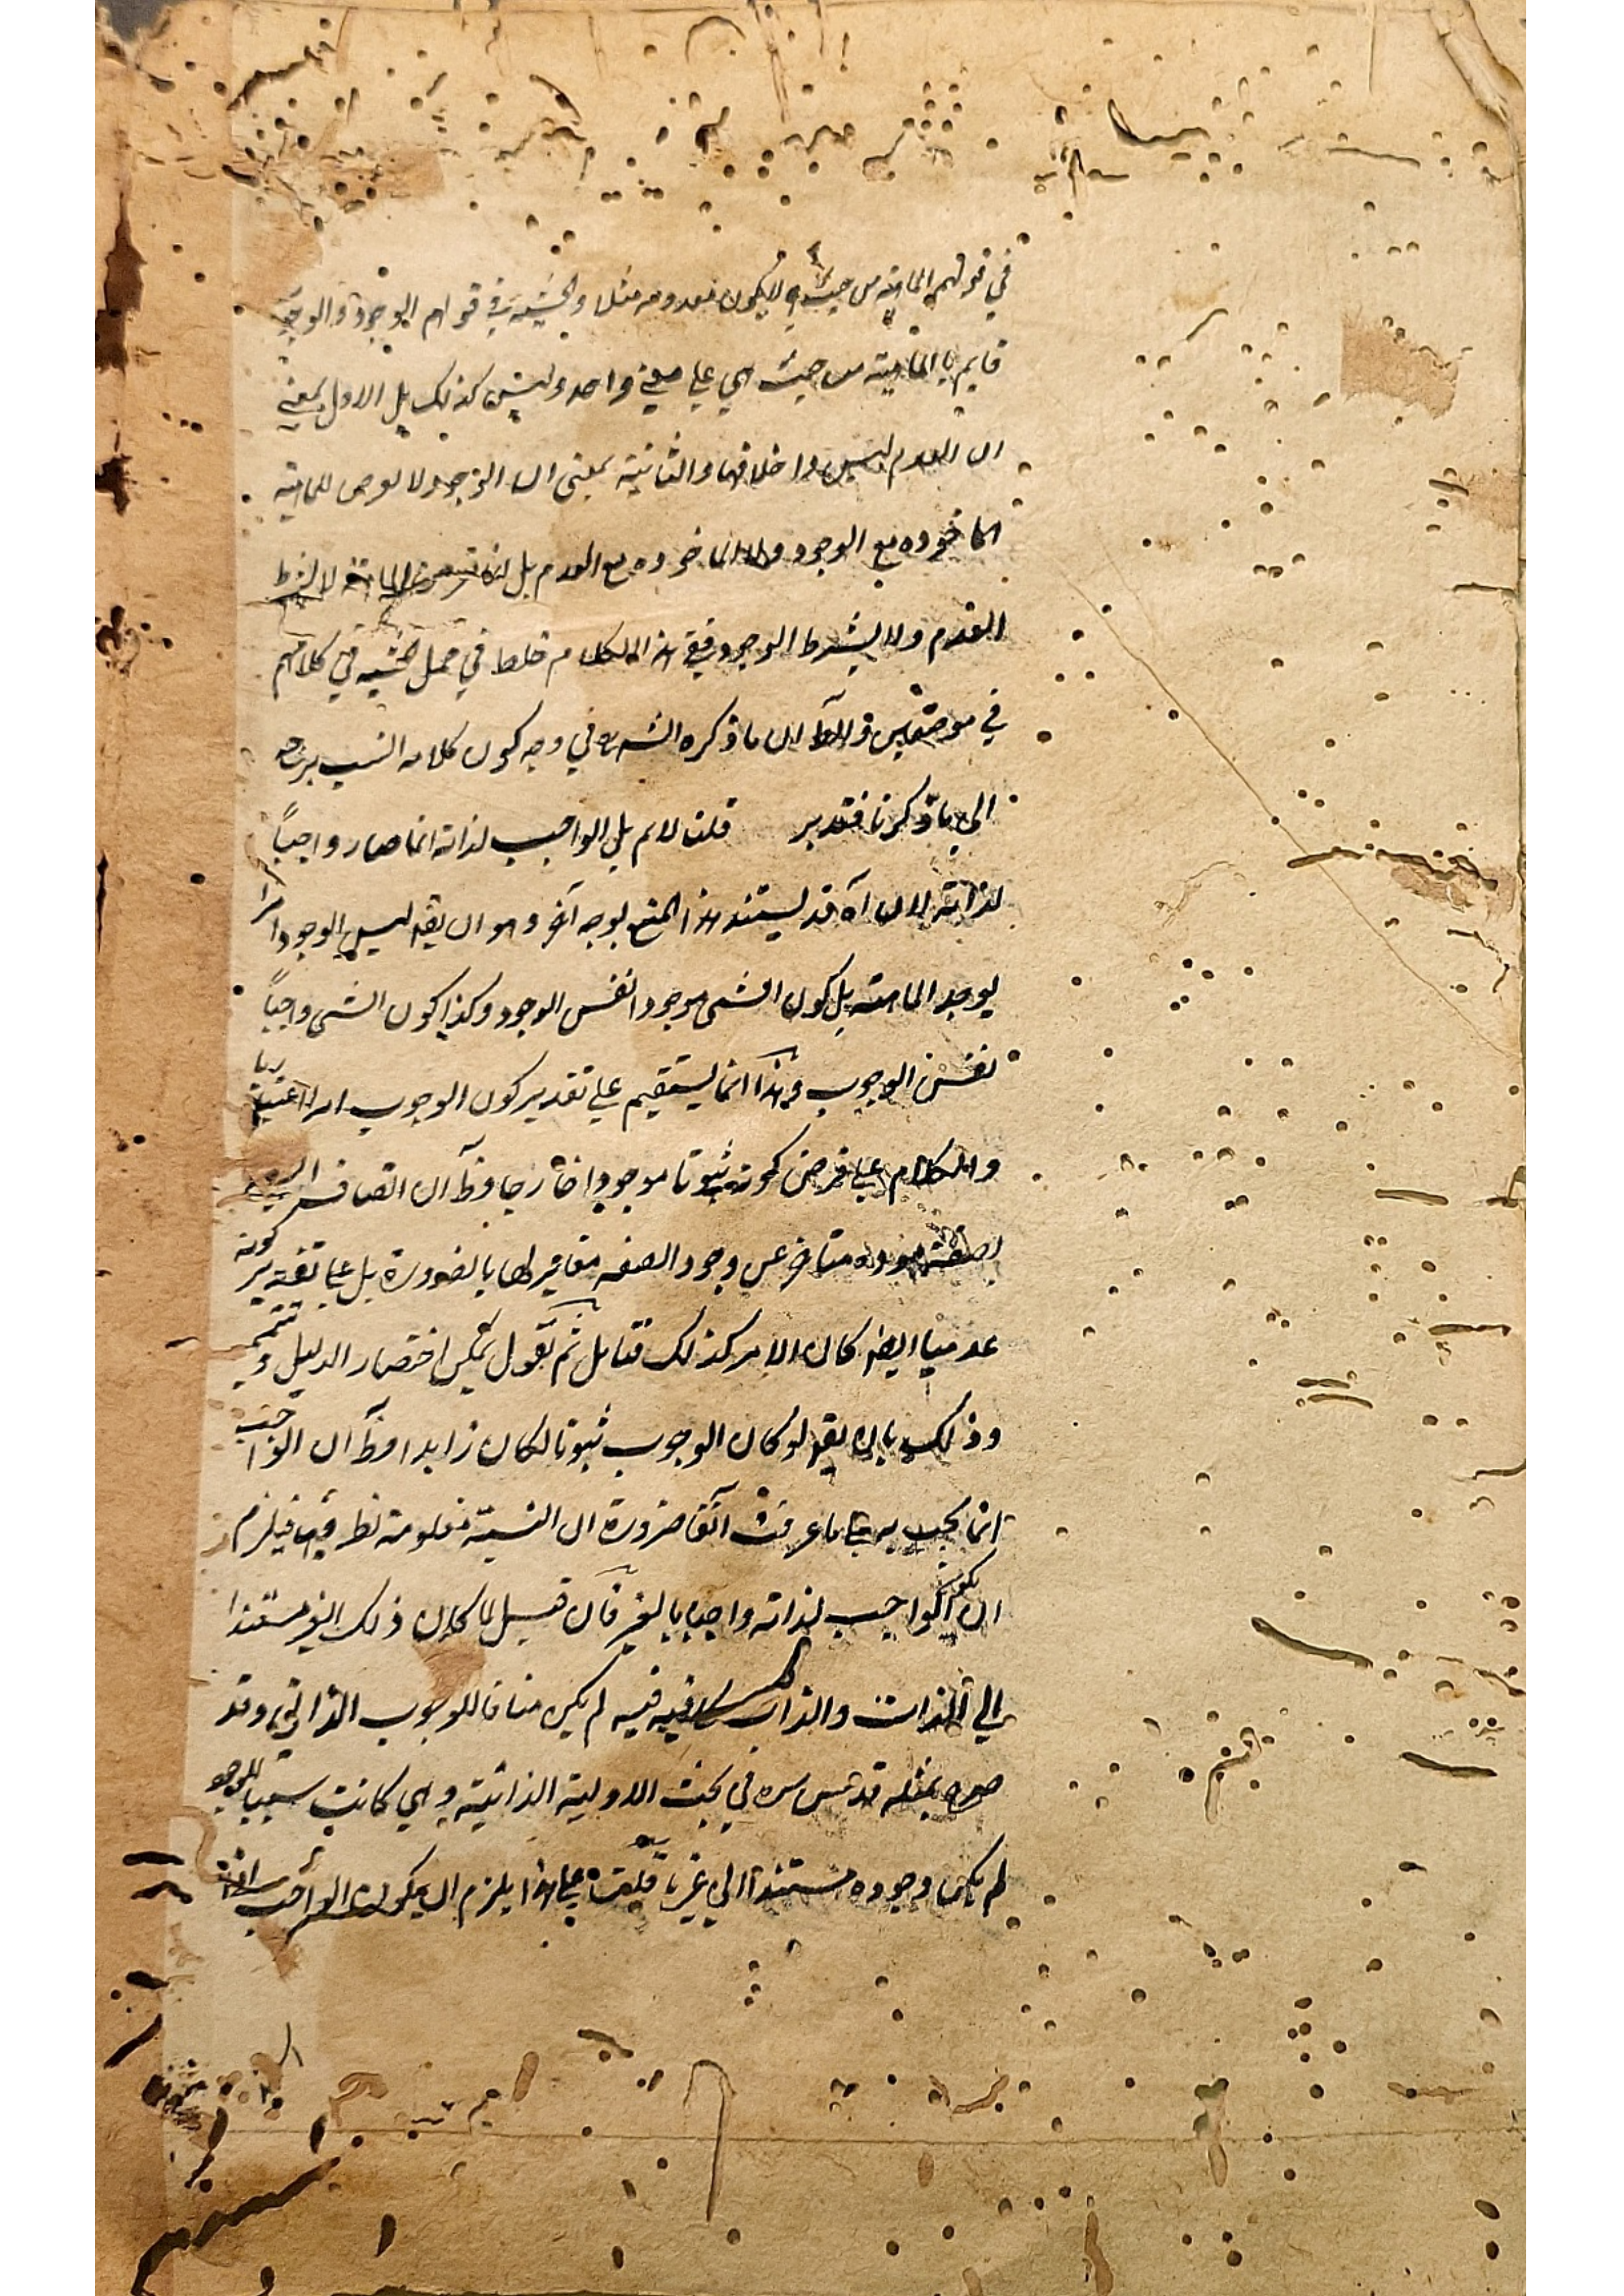 في قولهم الماهية من حيث هي لا يكون معدومة مثلا والحيثية في قولهم الوجود والوجوب
قايم بالماهية من حيث هي على معنى واحد وليس كذلك بل الاول بمعنى
ان العدم ليس داخلا فيها والثانية بمعنى ان الوجود لا يعرض للماهية
الماخوذه مع الوجود ولا الماخوذه مع العدم بل الماهية لا بشرط
العدم ولا بشرط الوجود ففي هذا الكلام خلط في حمل الحيثية في كلامهم
في موضعين والظ ان ما ذكره الشه في وجه كون كلامه انسب يرجع
الى ما ذكرنا فتدبر قلنا لانم بل الواجب لذاته انما صار واجباً
لذاته لان آه قد يستند هذا المنع بوجه آخر وهو ان يقه ليس الوجود امرا
يوجد الماهية بل كون الشئ موجودا نفس الوجود وكذا كون الشئ واجباً
نفس الوجوب وهذا انما يستقيم على تقدير كون الوجوب امرا اعتباريا
والكلام على فرض كونه ثبوتا موجودا خارجا وظ ان اتصاف الشئ
بصفة موجوده متاخر عن وجود الصفه مغاير لها بالضرورة بل على تقدير كونه
عدميا ايضا كان الامر كذلك فتامل ثم نقول يمكن اختصار الدليل وتتميم
وذلك بان يقه لو كان الوجوب ثبوتا لكان زايدا وظ ان الواجب
انما يجب به على ما عرفت آنفا ضرورة ان النسبة معلومة نظرفيها فيلزم
ان يكون الواجب لذاته واجبا بالغير فان قيل لما كان ذلك الغير مستندا
الى الذات والذات كافيه فيه لم يكن منافيا للوجوب الذاتي وقد
صرح بمثله قدس سره في بحث الاولية الذاتية وهي كانت سببا للوجود
لم يكن وجوده مستندا الى غيره قلت فعلى هذا يلزم ان يكون الواجب